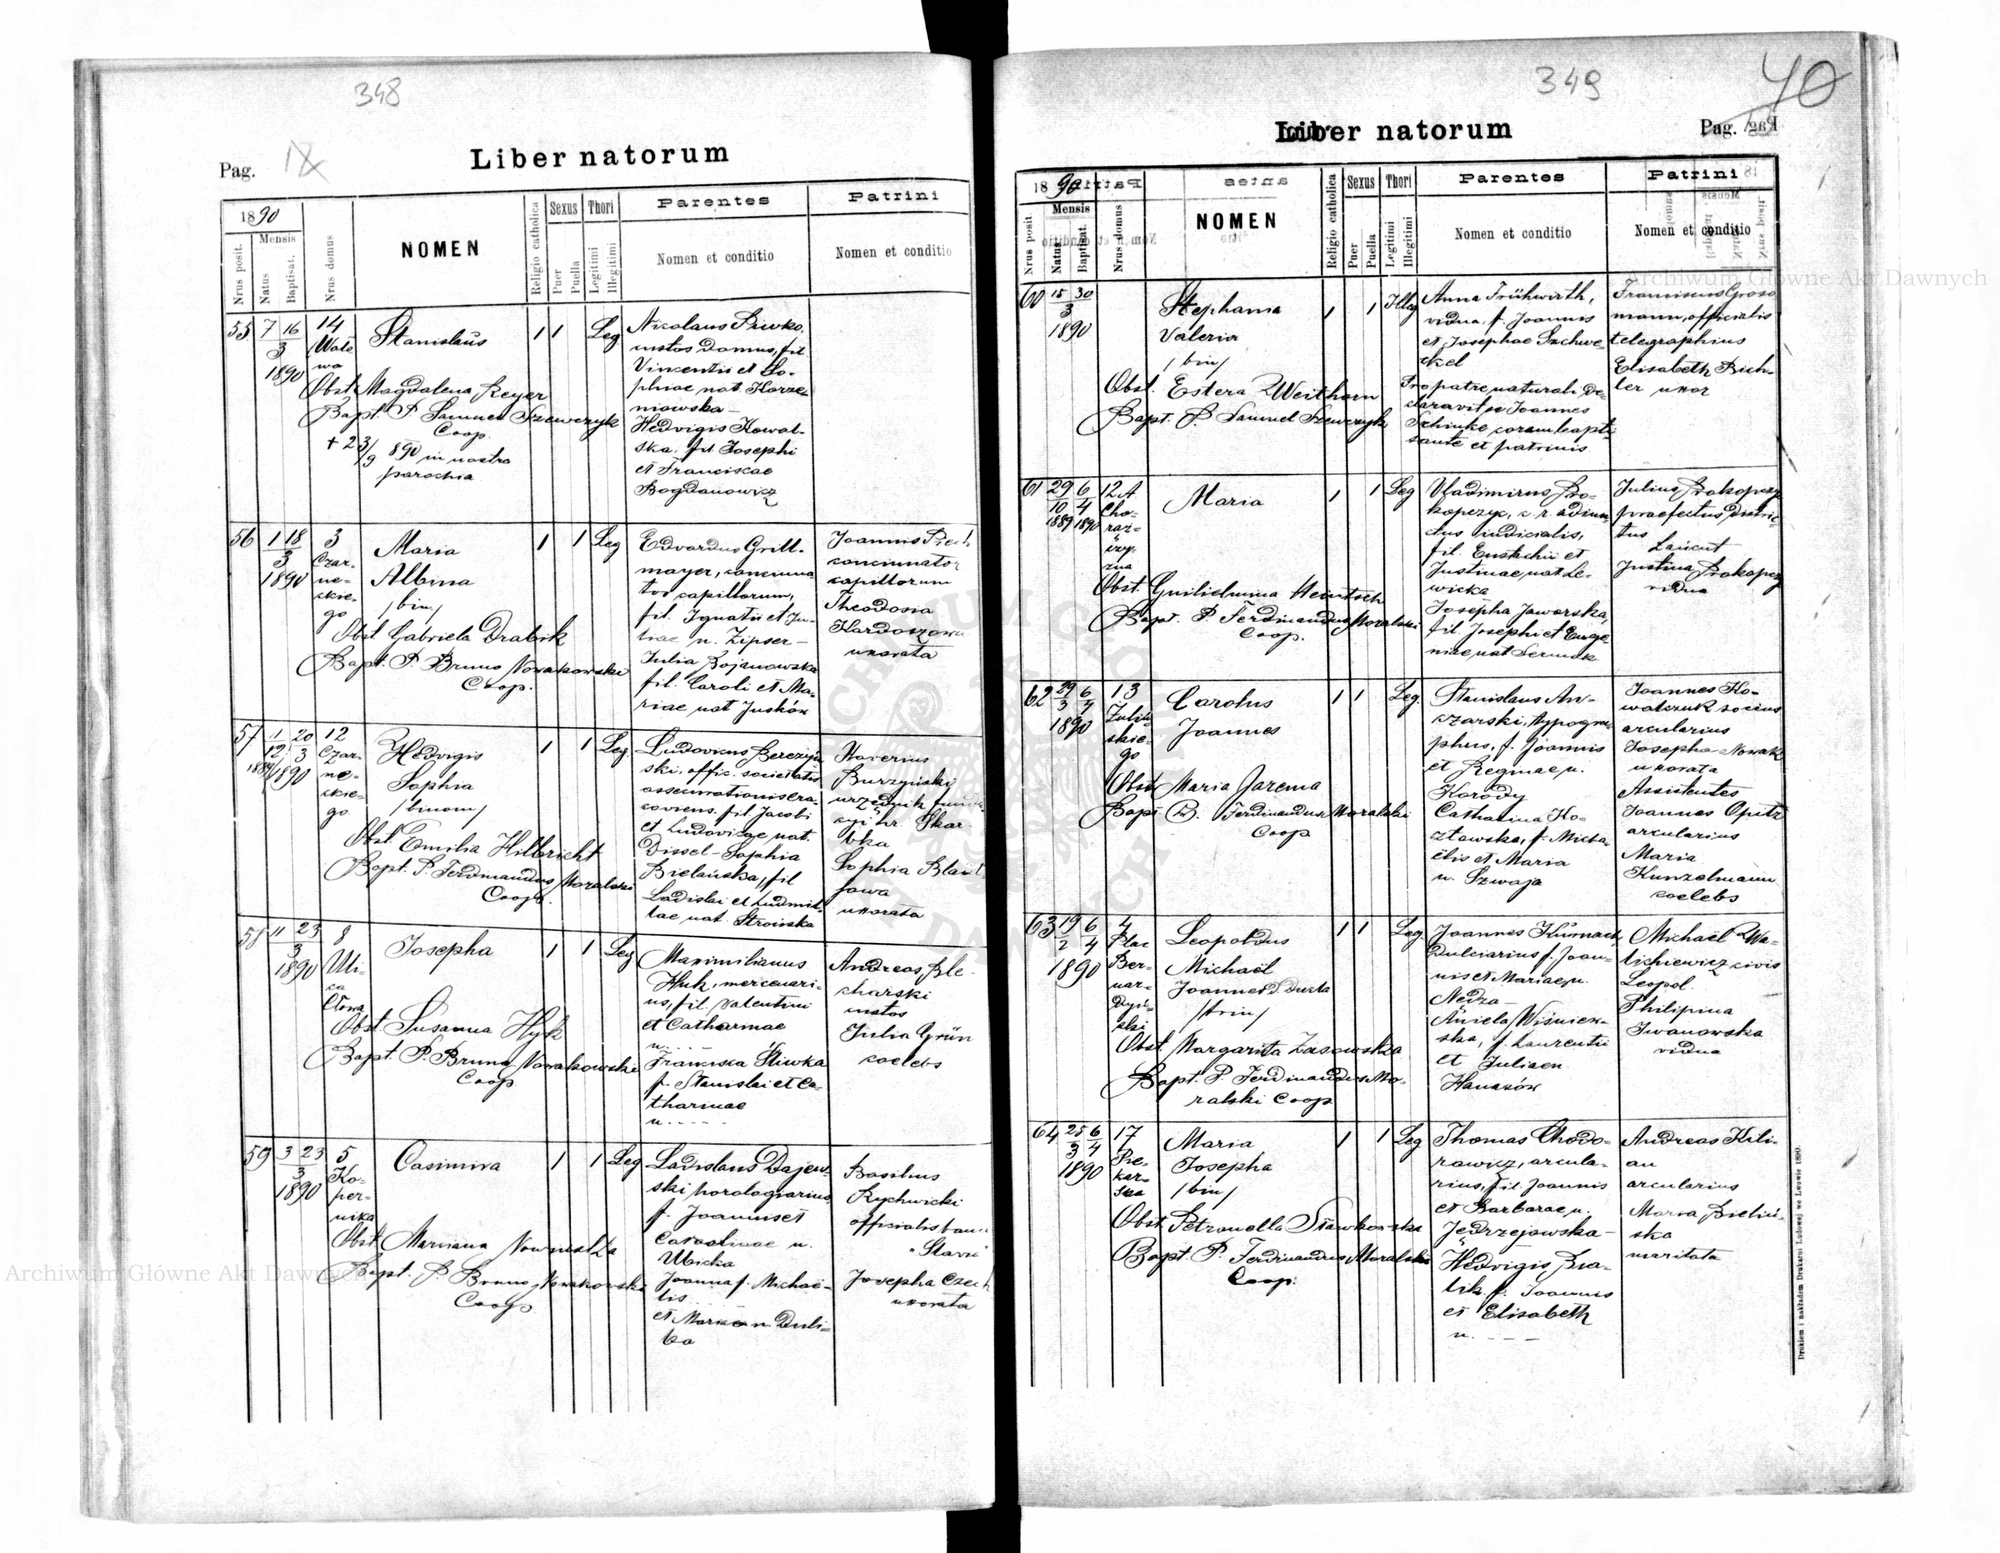 348
Pag. 18
Liber natorum
1890
Mensis
Nrus posit.
Natus
Baptisat.
Nrus domus
NOMEN
Religio catholica
Sexus
Puer
Puella
Thori
Legitimi
Illegitimi
Parentes
Nomen et conditio
Patrini
Nomen et conditio
55 7 16 14 Stanislaus 1 1 Leg
3 Wało
1890 wa
Obst Magdalena Reyer
Bapt. P. Samuel Szewczyk
Coop.
+ 23/9 890 in nostra
parochia
Nicolaus Piwko,
custos domus, fil
Vincentii et So-
phiae nat Korze-
niowska –
Hedvigis Kowal-
ska, fil Josephi
et Franciscae
Bogdanowicz
56 1 18 3 Maria 1 1 Leg
3 Czar-
1890 ne-
ckie-
go
Albina
/bin/
Obst Gabriela Drabik
Bapt. P. Bruno Nowakowski
Coop.
Edvardus Grill-
mayer, concinna
tor capillorum,
fil. Ignatii et Ju-
liae n. Zipser –
Julia Bojanowska
fil. Caroli et Ma-
riae nat Juśków
Joannes
concinnator
capillorum
Theodosia
Kardoszowa
uxorata
57 1 20 12 Hedvigis 1 1 Leg
12 3 Czar-
1889 1890 ne-
ckie-
go
Sophia
/binom/
Obst Emilia Hilbricht
Bapt. P. Ferdinandus Moralski
Coop.
Ludovicus
ski, offic. societatis
assecurationis cra-
coviens. fil Jacobi
et Ludovicae nat.
Dissel – Sophia
Bielańska, fil
Ladislai et Ludmil-
lae nat. Stroińska
Xaverius
Burzyński
urzędnik
cyi hr. Skar-
bka
Sophia
jowa
uxorata
58 11 23 8 Josepha 1 1 Leg
3 Uli-
1890 ca
Cłowa
Obst. Susanna Hyk
Bapt. P. Bruno Nowakowski
Coop
Maximilianus
Huk, mercenari-
us, fil. Valentini
et Catharinae
n. . . . .
Franciska Śliwka
f. Stanislai et Ca-
tharinae
n. . . . .
Andreas Ble-
charski
custos
Julia Grün
coelebs
59 3 23 5 Casimira 1 1 Leg
3 Ko-
1890 per-
nika
Obst Marianna
Bapt. P Bruno Nowakowski
Coop
Ladislaus Dajew-
ski horologiarius,
f. Joannis et
Carolinae n.
Uścicka
Joanna f. Michaë-
lis
et Mariae n. Duli-
ba
Basilius
Rychwicki
officialis banci
"Slavia"
Josepha Czech
uxorata
349
40
Liber natorum
Pag.
1890
Mensis
Nrus posit.
Natus
Baptisat.
Nrus domus
NOMEN
Religio catholica
Sexus
Puer
Puella
Thori
Legitimi
Illegitimi
Parentes
Nomen et conditio
Patrini
Nomen et conditio
60 15 30 Stephania 1 1 Illeg
3
1890
Valeria
/bin/
Obst. Estera Weithorn
Bapt. P. Samuel Szewczyk
Anna Frühwirth,
vidua, f. Joannis
et Josephae Szchwe-
ckel
Pro patre naturali de-
claravit se Joannes
Schinke coram bapti-
sante et patrinis
Franciscus Gross
mann, officialis
telegraphicus
Elisabeth Rich-
ter uxor
61 29 6 12A Maria 1 1 Leg
10 4 Cho-
1889 1890 rąż-
czyz
zna
Obst. Guilielmina Hentsch
Bapt. P. Ferdinandus Moralski
Coop.
Vladimirus Pro-
kopczyc, c. r. adiun-
ctus iudicialis,
fil. Eustachii et
Justinae nat Le-
wicka
Josepha Jaworska,
fil. Josephi et Euge
niae nat Sermak
Julius Prokopczyc
praefectus distric-
tus
Łańcut
Justina Prokopczyc
vidua
62 29 6 13 Carolus 1 1 Leg
3 4 Zuliń-
1890 skie-
go
Joannes
Obst Maria Jarema
Bapt. P. Ferdinandus Moralski
Coop
Stanislaus An-
czarski, typogra-
phus, f. Joannis
et Reginae n.
Korody
Catharina Ko-
złowska, f. Micha
ëlis et Maria
n. Szwaja
Joannes Ko-
walczuk socius
arcularius
Josepha Nowak
uxorata
Assistentes
Joannes Opitz
arcularius
Maria
Kunzelmann
coelebs
63 19 6 4 Leopoldus 1 1 Leg
2 4 Plac
1890 Ber-
nar-
dyń-
ski
Michaël
Joannes d. Dukla
/trin/
Obst Margarita Zasowska
Bapt. P. Ferdinandus Mo-
ralski Coop
Joannes
Dulciarius f. Joan-
nis et Mariae n.
Nedza –
Aniela Wiśniew-
ska, f. Laurentii
et Juliaen
Hanasów
Michaël Wa-
lichiewicz civis
Leopol.
Philipina
Iwanowska
vidua
64 25 6 17 Maria 1 1 Leg
3 4 Pie-
1890 kar-
ska
Josepha
/bin/
Obst. Petronella Sławkowska
Bapt. P. Ferdinandus Moralski
Coop.
Thomas Chodo-
rowicz, arcula-
rius, fil. Joannis
et Barbarae n.
Jędrzejowska –
Hedvigis Bia-
lik f. Joannis
et Elisabeth
n. . . . .
Andreas Kili-
an
arcularius
Maria Bieliń-
ska
maritata
Drukiem i nakładem Drukarni Ludowej we Lwowie 1890.
Archiwum Główne Akt Dawnych
Archiwum Główne Akt Dawnych